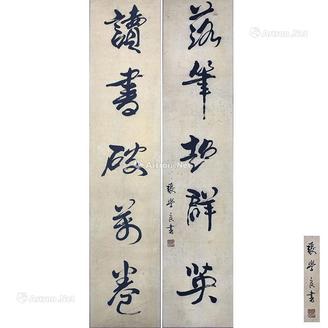 讀書破萬卷
落筆超群英
張學良書
張學良書
Artron.Net